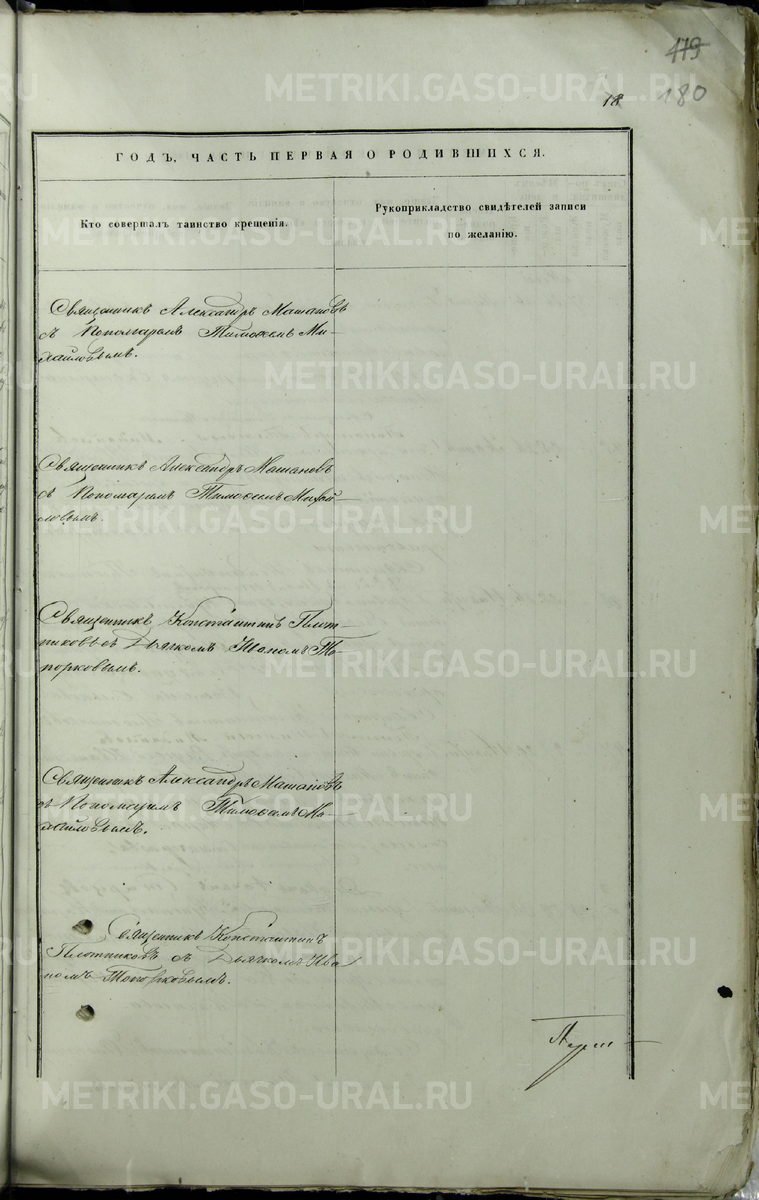 179
180
18
ГОДЪ, ЧАСТЬ ПЕРВАЯ О РОДИВШИХСЯ.
Кто совершалъ таинство крещенія.
Рукоприкладство свидѣтелей записи
по желанію.
Священникъ Александръ Матановъ
съ Пономаремъ Тимоѳеемъ Ми-
хайловымъ.
Священникъ Александръ Матановъ
съ Пономаремъ Тимоѳеемъ Михай-
ловымъ.
Священникъ Константинъ Плот-
никовъ съ Дьячкомъ Иваномъ То-
порковымъ.
Священникъ Александръ Матановъ
съ Пономаремъ Тимоѳеемъ Ми-
хайловымъ.
Священникъ Константинъ
Плотниковъ съ Дьячкомъ Ива
номъ Топорковымъ.
METRIKI.GASO-URAL.RU